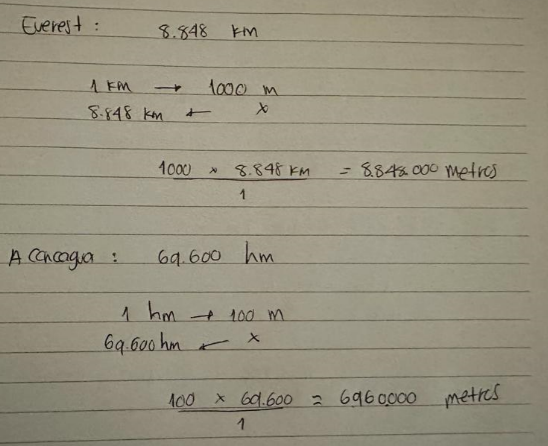 Everest : 8.848 km
1 km → 1000 m
8.848 km ← x
1000 × 8.848 km = 8.848.000 metros
1
Aconcagua : 69.600 hm
1 hm → 100 m
69.600 hm ← x
100 × 69.600 = 6960000 metros
1